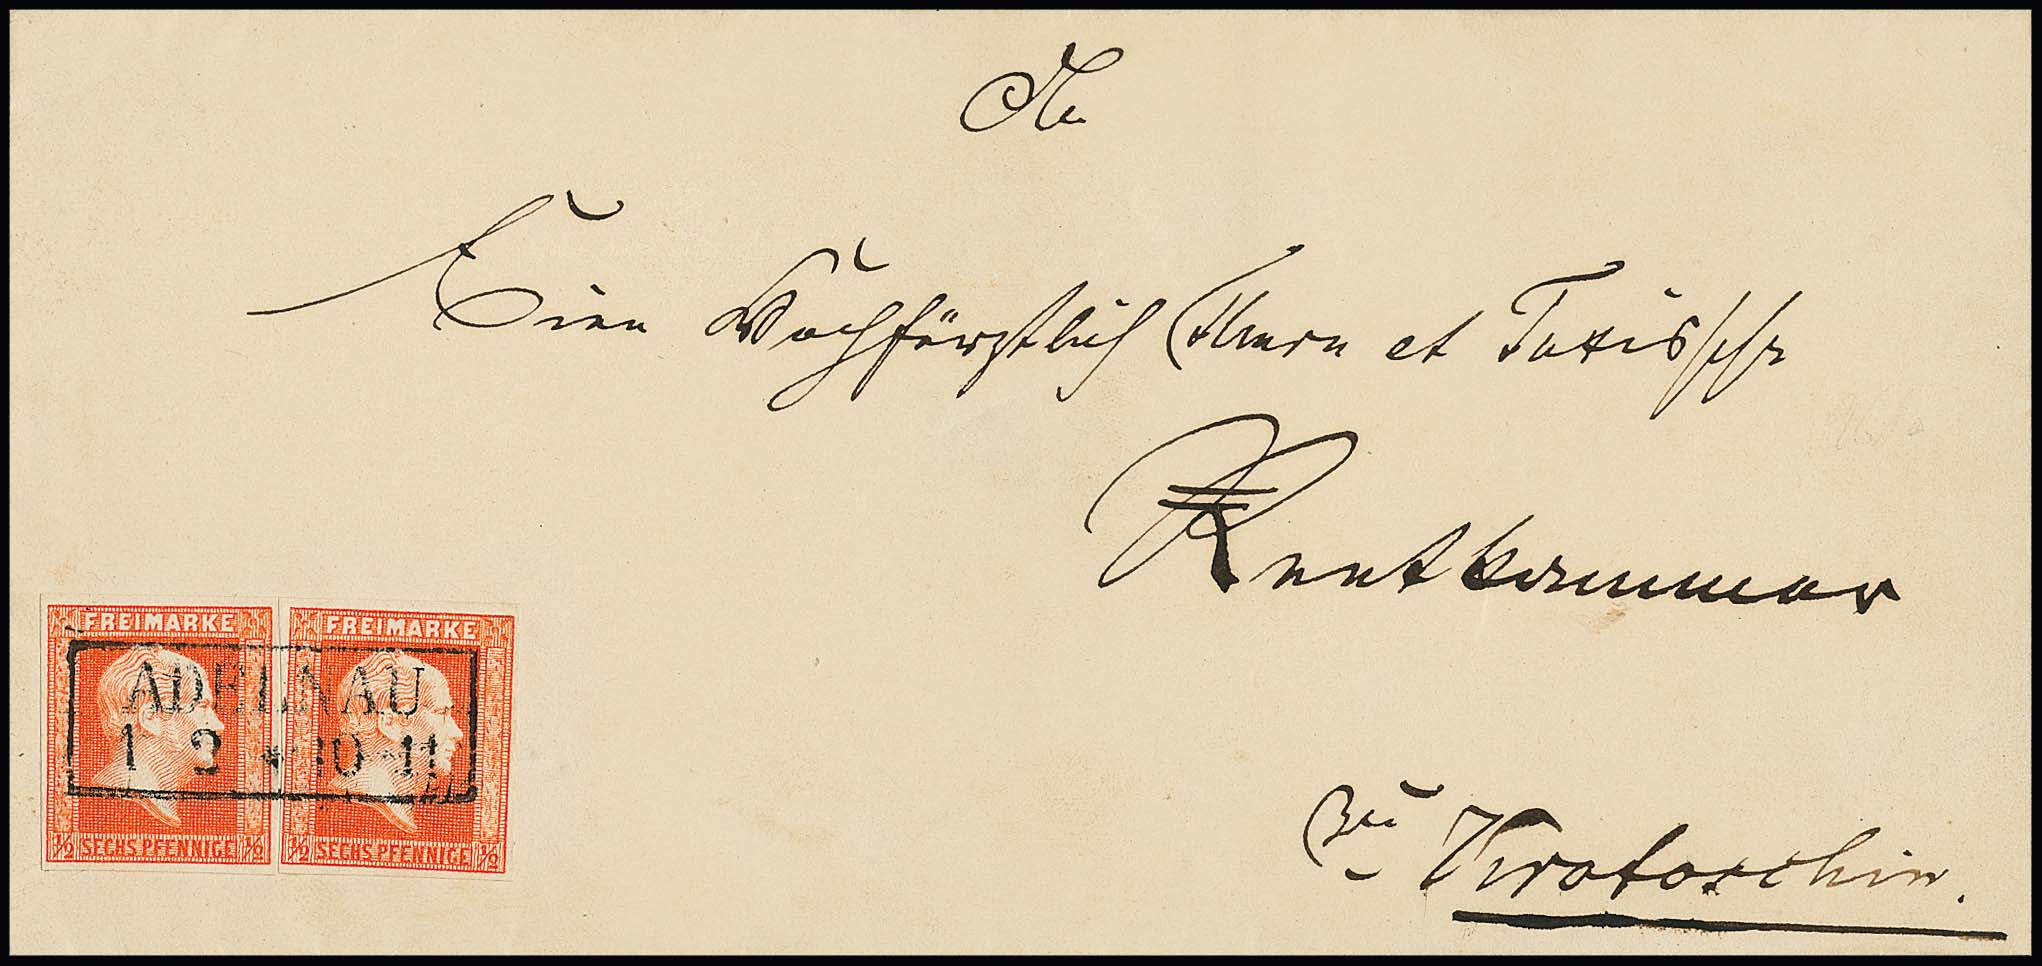 An
Eine Hochfürstlich Thurn et Taxissche
Rentkammer
zu Krotoschin.
FREIMARKE FREIMARKE
ADELNAU
1 2 * 10-11
1/2 SECHS PFENNIGE 1/2 1/2 SECHS PFENNIGE 1/2